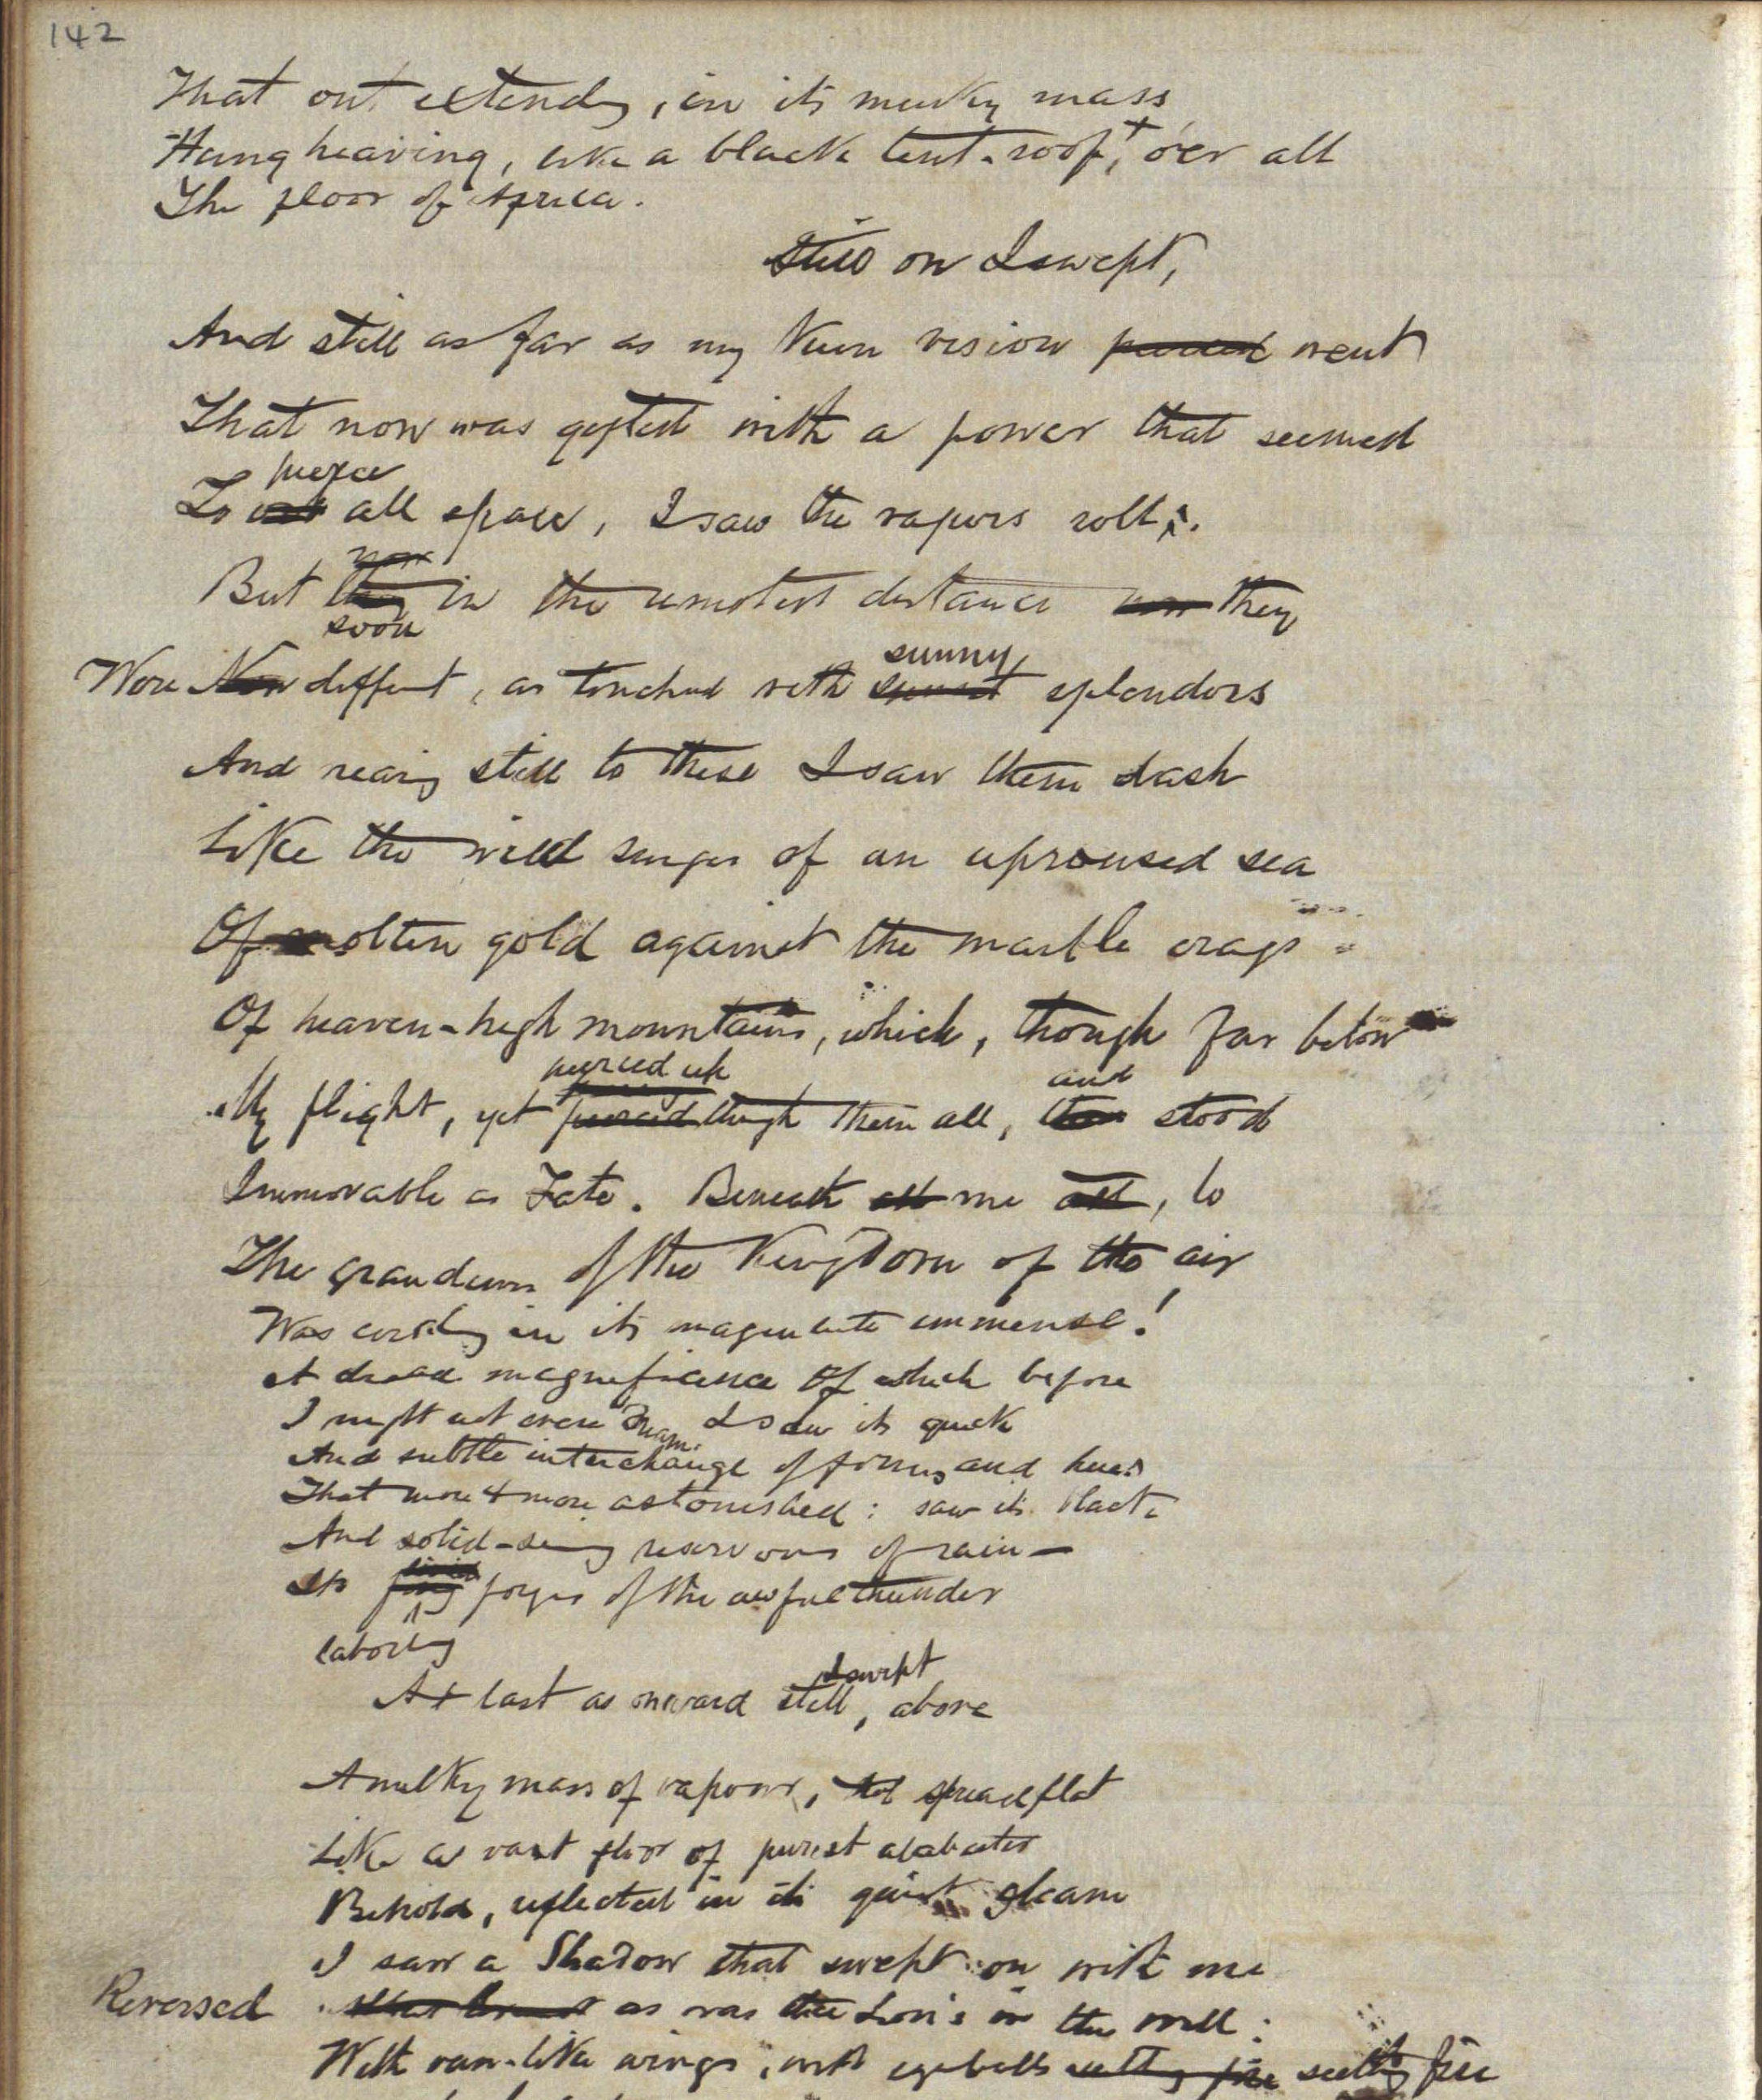 142
That out extending, in its murky mass
Hung heaving, like a black tent-roof,+ o'er all
The floor of Africa.
Still on I swept,
And still as far as my keen vision went
That now was gifted with a power that seemed
pierce
To all space, I saw the vapors roll.
now
But they in the remotest distance now they
soon
Wore Now diff'rent, as touched with sunset splendors
sunny
And rearing still to these I saw them dash
Like the wild surges of an uproused sea
Of molten gold against the marble crags
Of heaven-high mountains, which, though far below
pierced up
My flight, yet pierced through them all, stood
and
Immovable as Fate. Beneath all me all, lo
The grandeurs of the Kingdom of the air
Was circling in its magnitude immense!
A dread magnificence of which before
I might not even dream. I saw its quick
And subtle interchange of forms and hues
That more & more astonished: saw its black
And solid-seeming reservoirs of rain—
Its forges of the awful thunder
laboring
I swept
At last as onward still, above
A milky mass of vapour, spread flat
Like a vast floor of purest alabaster
Behold, reflected in its quiet gleam
I saw a Shadow that swept on with me
Reversed as was the Lion's in the well:
With van-like wings, with eyeballs seething fire seething fire